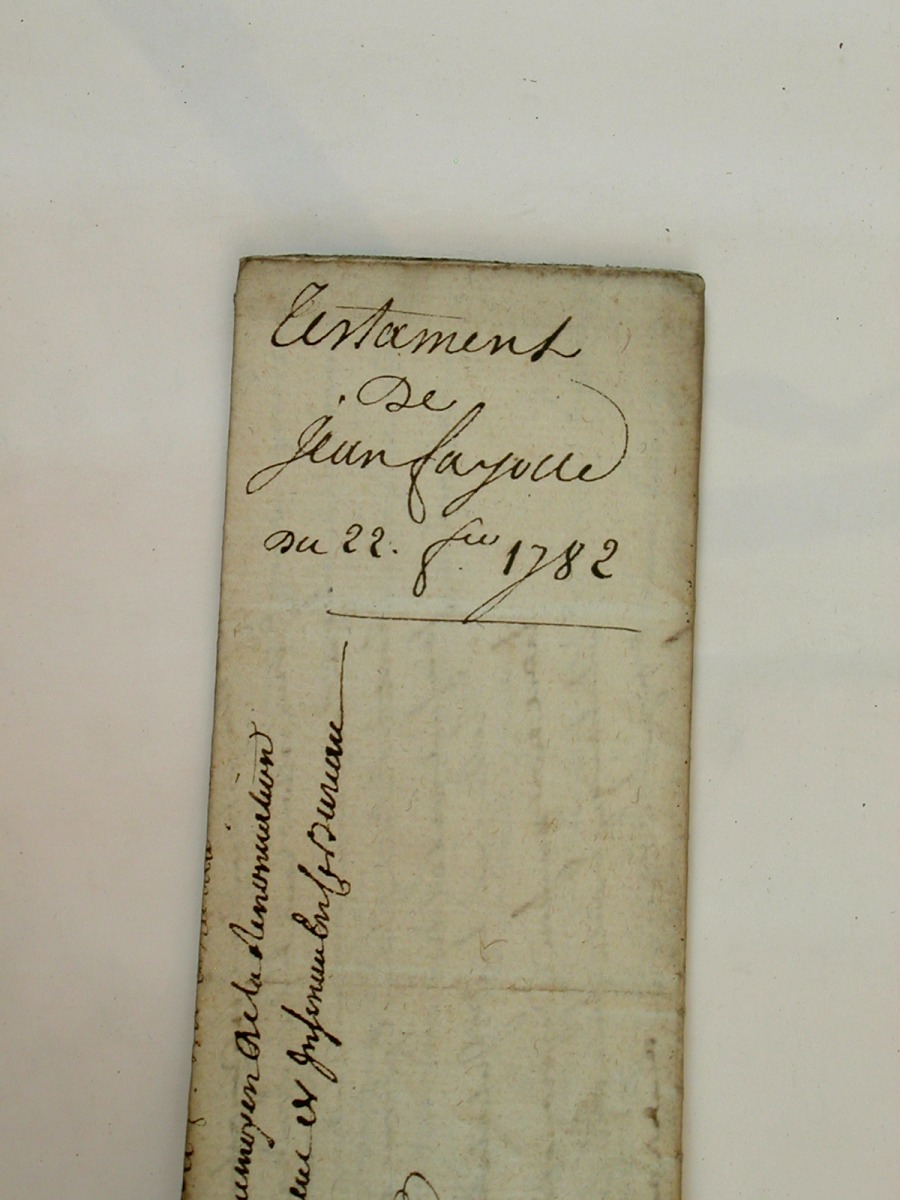 Testament
De
Jean fayolle
Du 22. 1782
moyen de la Renonciation
et Insinué En ce Bureau